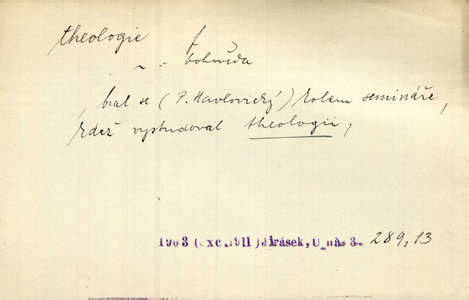 theologie f
~ ~ bohověda
bral se (P. Havlovický) kolem semináře,
kdež vystudoval theologii,
1903 (exc.1911) Jirásek, U nás 3. 289,13